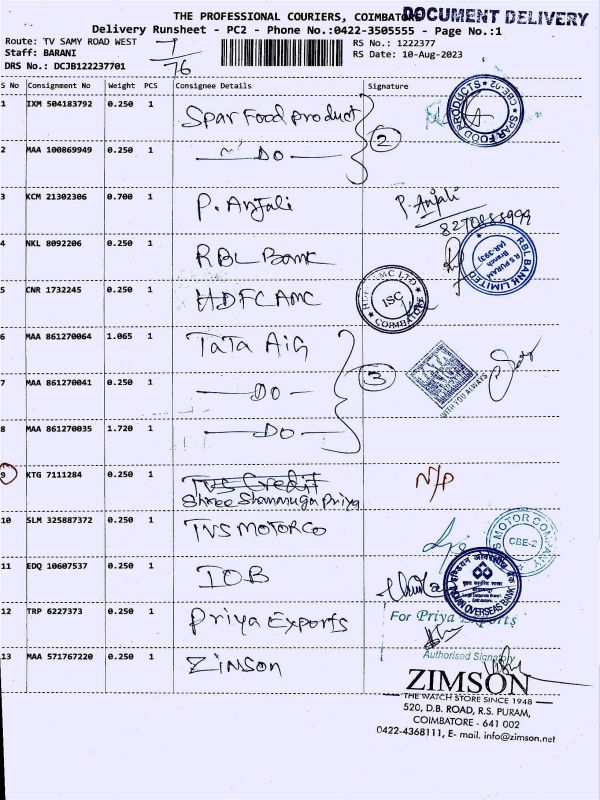 THE PROFESSIONAL COURIERS, COIMBATORE
DOCUMENT DELIVERY
Delivery Runsheet - PC2 - Phone No.:0422-3505555 - Page No.:1
Route: TV SAMY ROAD WEST
RS No.: 1222377
Staff: BARANI
RS Date: 10-Aug-2023
DRS No.: DCJB122237701
76
S No Consignment No Weight PCS Consignee Details Signature
1 IXM 504183792 0.250 1 Spar Food product
2
SPAR FOOD PRODUCTS * CBE-02 *
2 MAA 100869949 0.250 1 DO
3 KCM 21302306 0.700 1 P. Anjali P. Anjali
4 NKL 8092206 0.250 1 RBL Bank
RBL BANK LIMITED
R S PURAM
Branch
(AR-393)
5 CNR 1732245 0.250 1 HDFC AMC
HDFC AMC LTD
ISC
COIMBATORE
6 MAA 861270064 1.065 1 TATA AIG
3
TATA
WITH YOU ALWAYS
7 MAA 861270041 0.250 1 DO
8 MAA 861270035 1.720 1 DO
9 KTG 7111284 0.250 1 TVS Credit
Shree Shanmuga Priya
N/P
10 SLM 325887372 0.250 1 TVS MOTOR CO
TVS MOTOR COMPANY
CBE-2
11 EDQ 10607537 0.250 1 IOB
INDIAN OVERSEAS BANK
12 TRP 6227373 0.250 1 Priya Exports
For Priya Exports
Authorised Signatory
13 MAA 571767220 0.250 1 Zimson
ZIMSON
THE WATCH STORE SINCE 1948
520, D.B. ROAD, R.S. PURAM,
COIMBATORE - 641 002
0422-4368111, E- mail. info@zimson.net